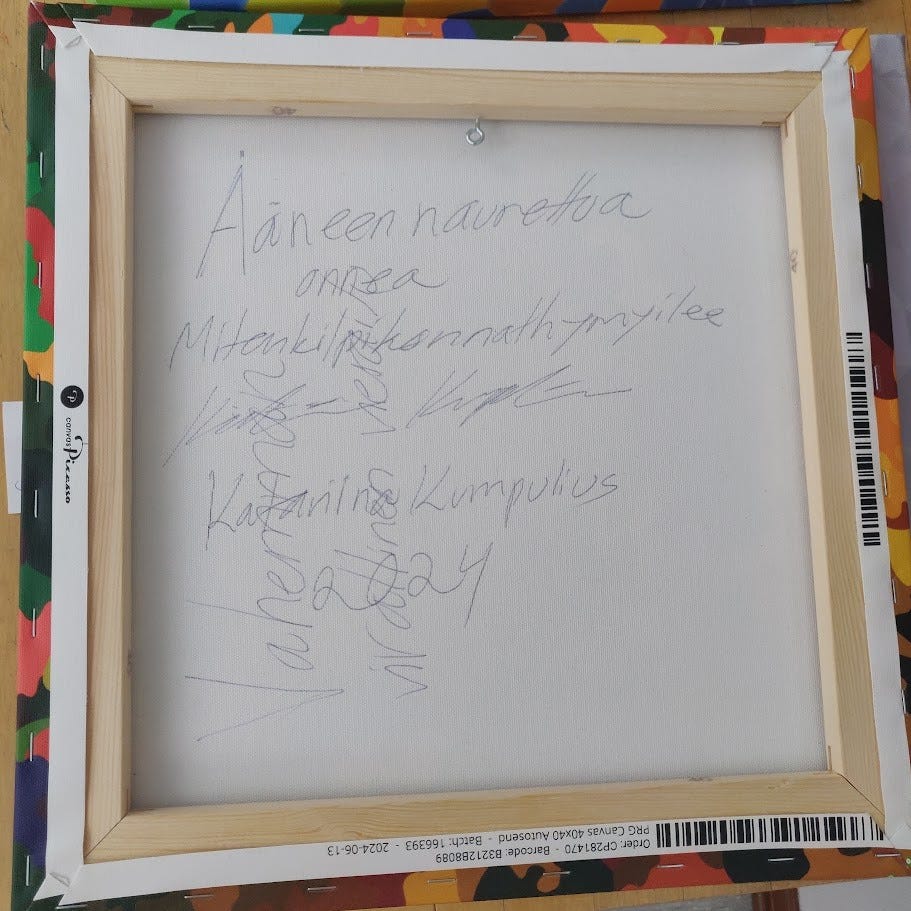 Ääneen naurettua
onnea
Miten kilpikonnat hymyilee
Katariina Kumpulius
2024
Vaherman
vireätinä
canvas Picasso
Order: CP281470 - Barcode: B3212B8089
PRG Canvas 40x40 Autosend - Batch: 166393 - 2024-06-13